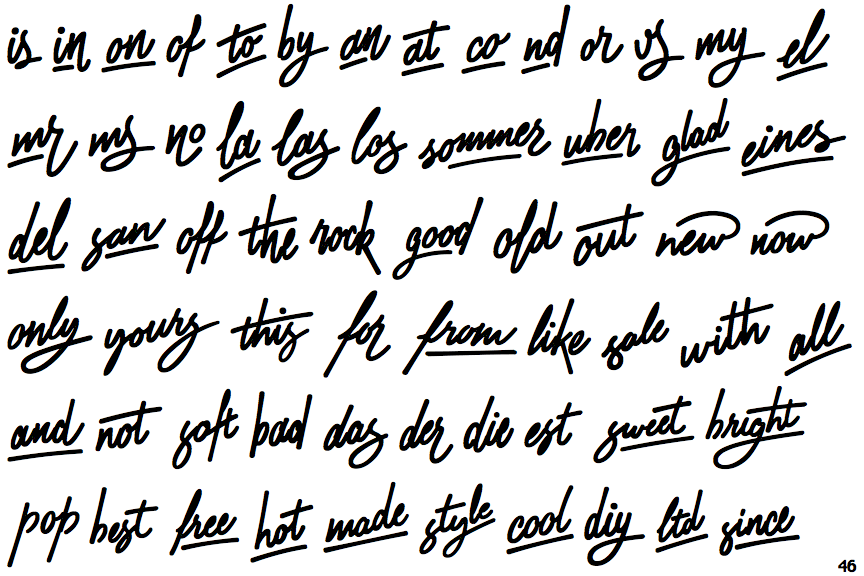 is in on of to by an at co nd or vs my el
mr ms no la las los sommer uber glad eines
del san off the rock good old out new now
only yours this for from like sale with all
and not soft bad das der die est sweet bright
pop best free hot made style cool diy ltd since
46